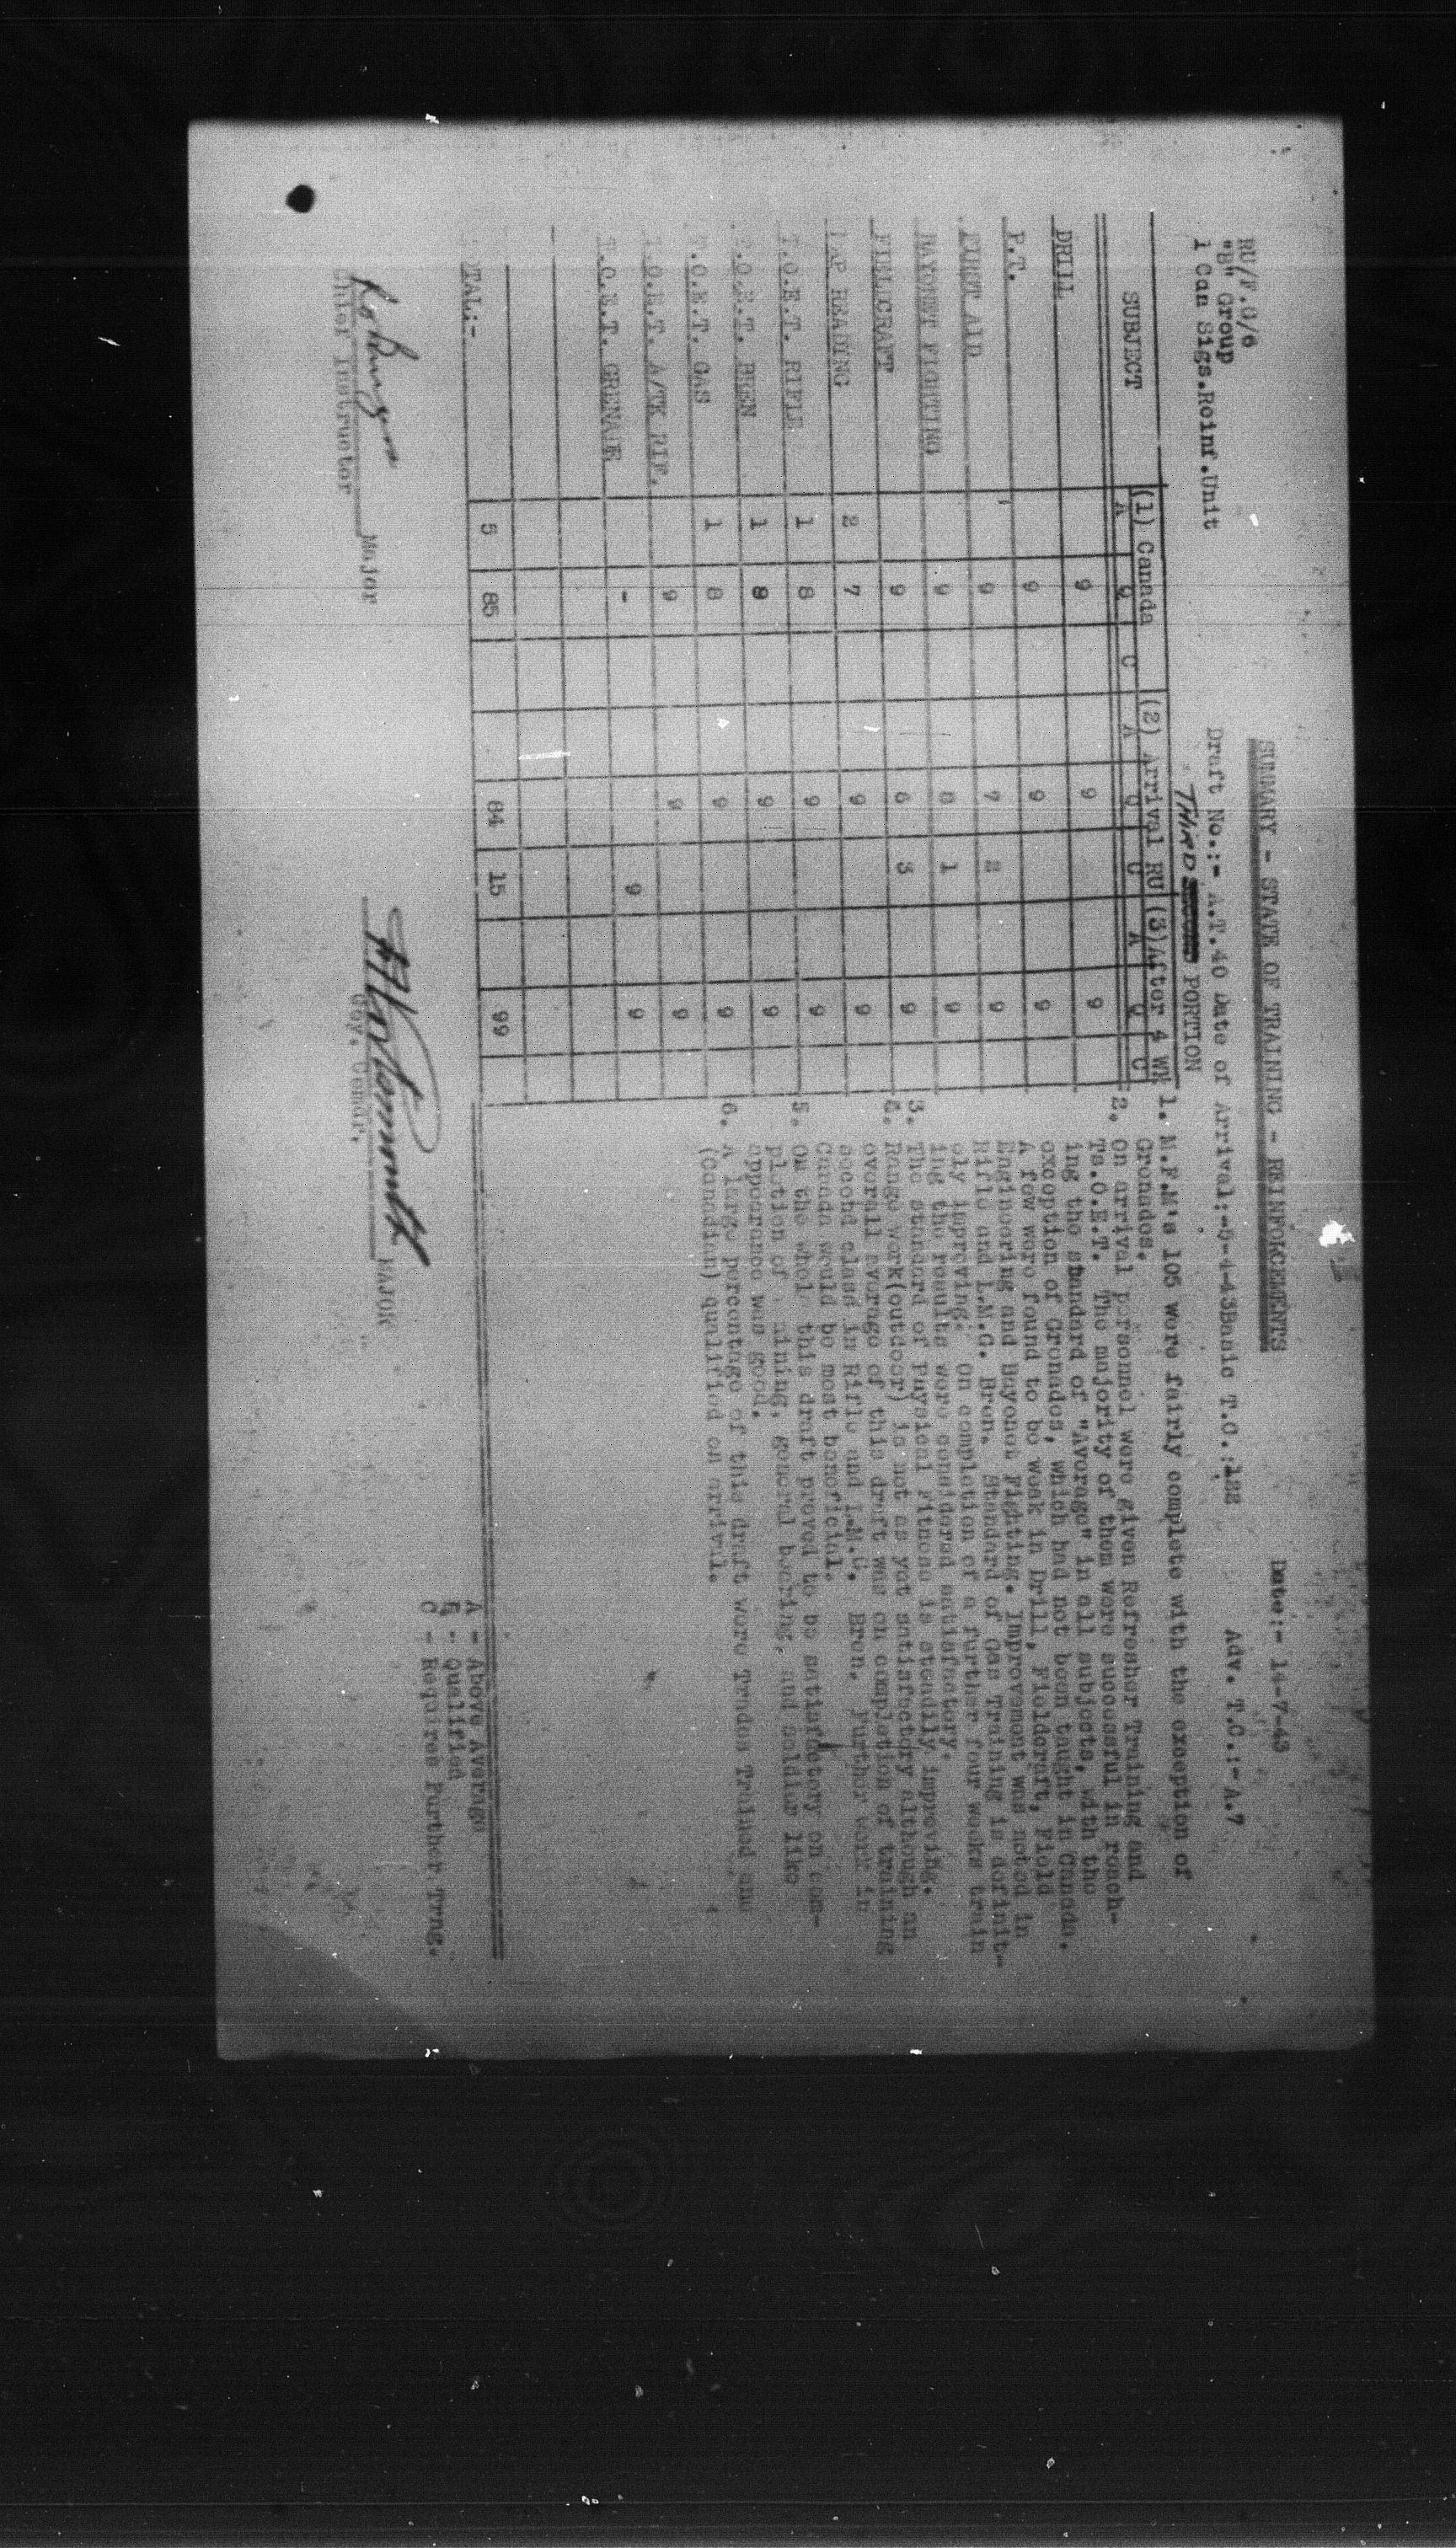 RU/F.O/6
"B" Group
1 Can Sigs.Reinf.Unit
Date:- 14-7-43
SUMMARY - STATE OF TRAINING - REINFORCEMENTS
Adv. T.C.:- A.7
Draft No.:- A.T.40 Date of Arrival:- -4-43Basic T.C.:
THIRD PORTION
SUBJECT (1) Canada (2) Arrival RU (3)After 4 WK
A Q C A Q C A Q C
DRILL 9 9 9
P.T. 9 9 9
FIRST AID 9 7 2 9
BAYONET FIGHTING 9 8 1 9
FIELDCRAFT 9 6 3 9
MAP READING 2 7 9 9
T.O.E.T. RIFLE 1 8 9 9
T.O.E.T. BREN 1 8 9 9
T.O.E.T. GAS 1 8 9 9
T.O.E.T. A/TK RIF. 9 9 9
T.O.E.T. GRENADE - 9 9
TOTAL:- 5 85 84 15 99
1. M.F.M's 105 were fairly complete with the exception of
Grenades.
2. On arrival personnel were given Refresher Training and
Ts.O.E.T. The majority of them were successful in reach-
ing the standard of "Average" in all subjects, with the
exception of Grenades, which had not been taught in Canada.
A few were found to be weak in Drill, Fieldcraft, Field
Engineering and Bayonet Fighting. Improvement was noted in
Rifle and L.M.G. Bren. Standard of Gas Training is definit-
ely improving. On completion of a further four weeks train
ing the results were considered satisfactory.
3. The standard of Physical Fitness is steadily improving.
Range work(outdoor) is not as yet satisfactory although an
overall average of this draft was on completion of training
second class in Rifle and L.M.G. Bren. Further work in
Canada would be most beneficial.
5. On the whole this draft proved to be satisfactory on com-
pletion of training, general bearing, and soldier like
appearance was good.
6. A large percentage of this draft were Trades Trained and
(Canadian) qualified on arrival.
A - Above Average
Q - Qualified
C - Requires Further Trng.
Major
Chief Instructor
MAJOR
Coy. Comdr.